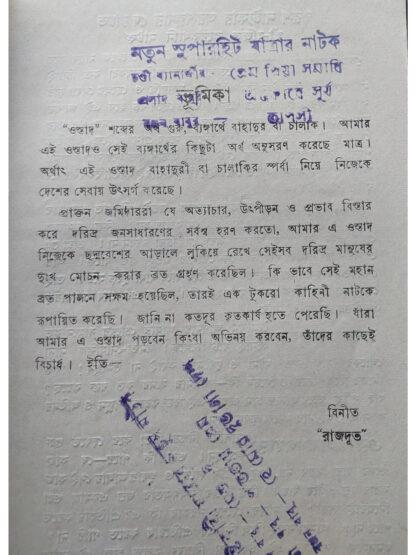 নতুন সুপারহিট যাত্রার নাটক
ভূমিকা
"ওস্তাদ" শব্দের অর্থ গুরু, ব্যঙ্গার্থে বাহাদুর বা চালাক। আমার
এই ওস্তাদও সেই ব্যঙ্গার্থের কিছুটা অর্থ অনুসরণ করেছে মাত্র।
অর্থাৎ এই ওস্তাদ বাহাদুরী বা চালাকির স্পর্ধা নিয়ে নিজেকে
দেশের সেবায় উৎসর্গ করেছে।
প্রাক্তন জমিদাররা যে অত্যাচার, উৎপীড়ন ও প্রভাব বিস্তার
করে দরিদ্র জনসাধারণের সর্বস্ব হরণ করতো, আমার এ ওস্তাদ
নিজেকে ছদ্মবেশের আড়ালে লুকিয়ে রেখে সেইসব দরিদ্র মানুষের
দুঃখ মোচন করার ব্রত গ্রহণ করেছিল। কি ভাবে সেই মহান
ব্রত পালনে সক্ষম হয়েছিল, তারই এক টুকরো কাহিনী নাটকে
রূপায়িত করেছি। জানি না কতদূর কৃতকার্য হতে পেরেছি। যাঁরা
আমার এ ওস্তাদ পড়বেন কিংবা অভিনয় করবেন, তাঁদের কাছেই
বিচার্য। ইতি—
বিনীত
"রাজদূত"